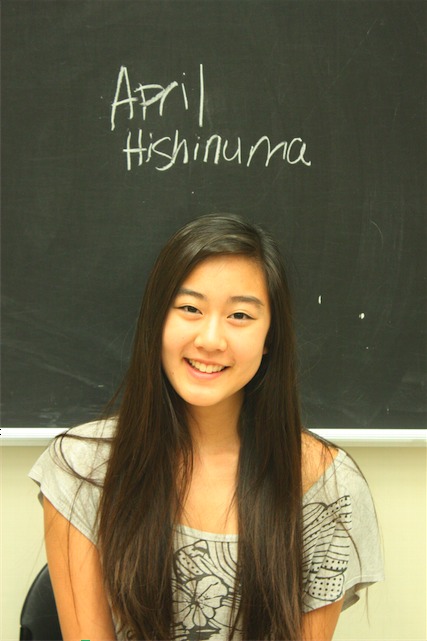 April
Hishinuma